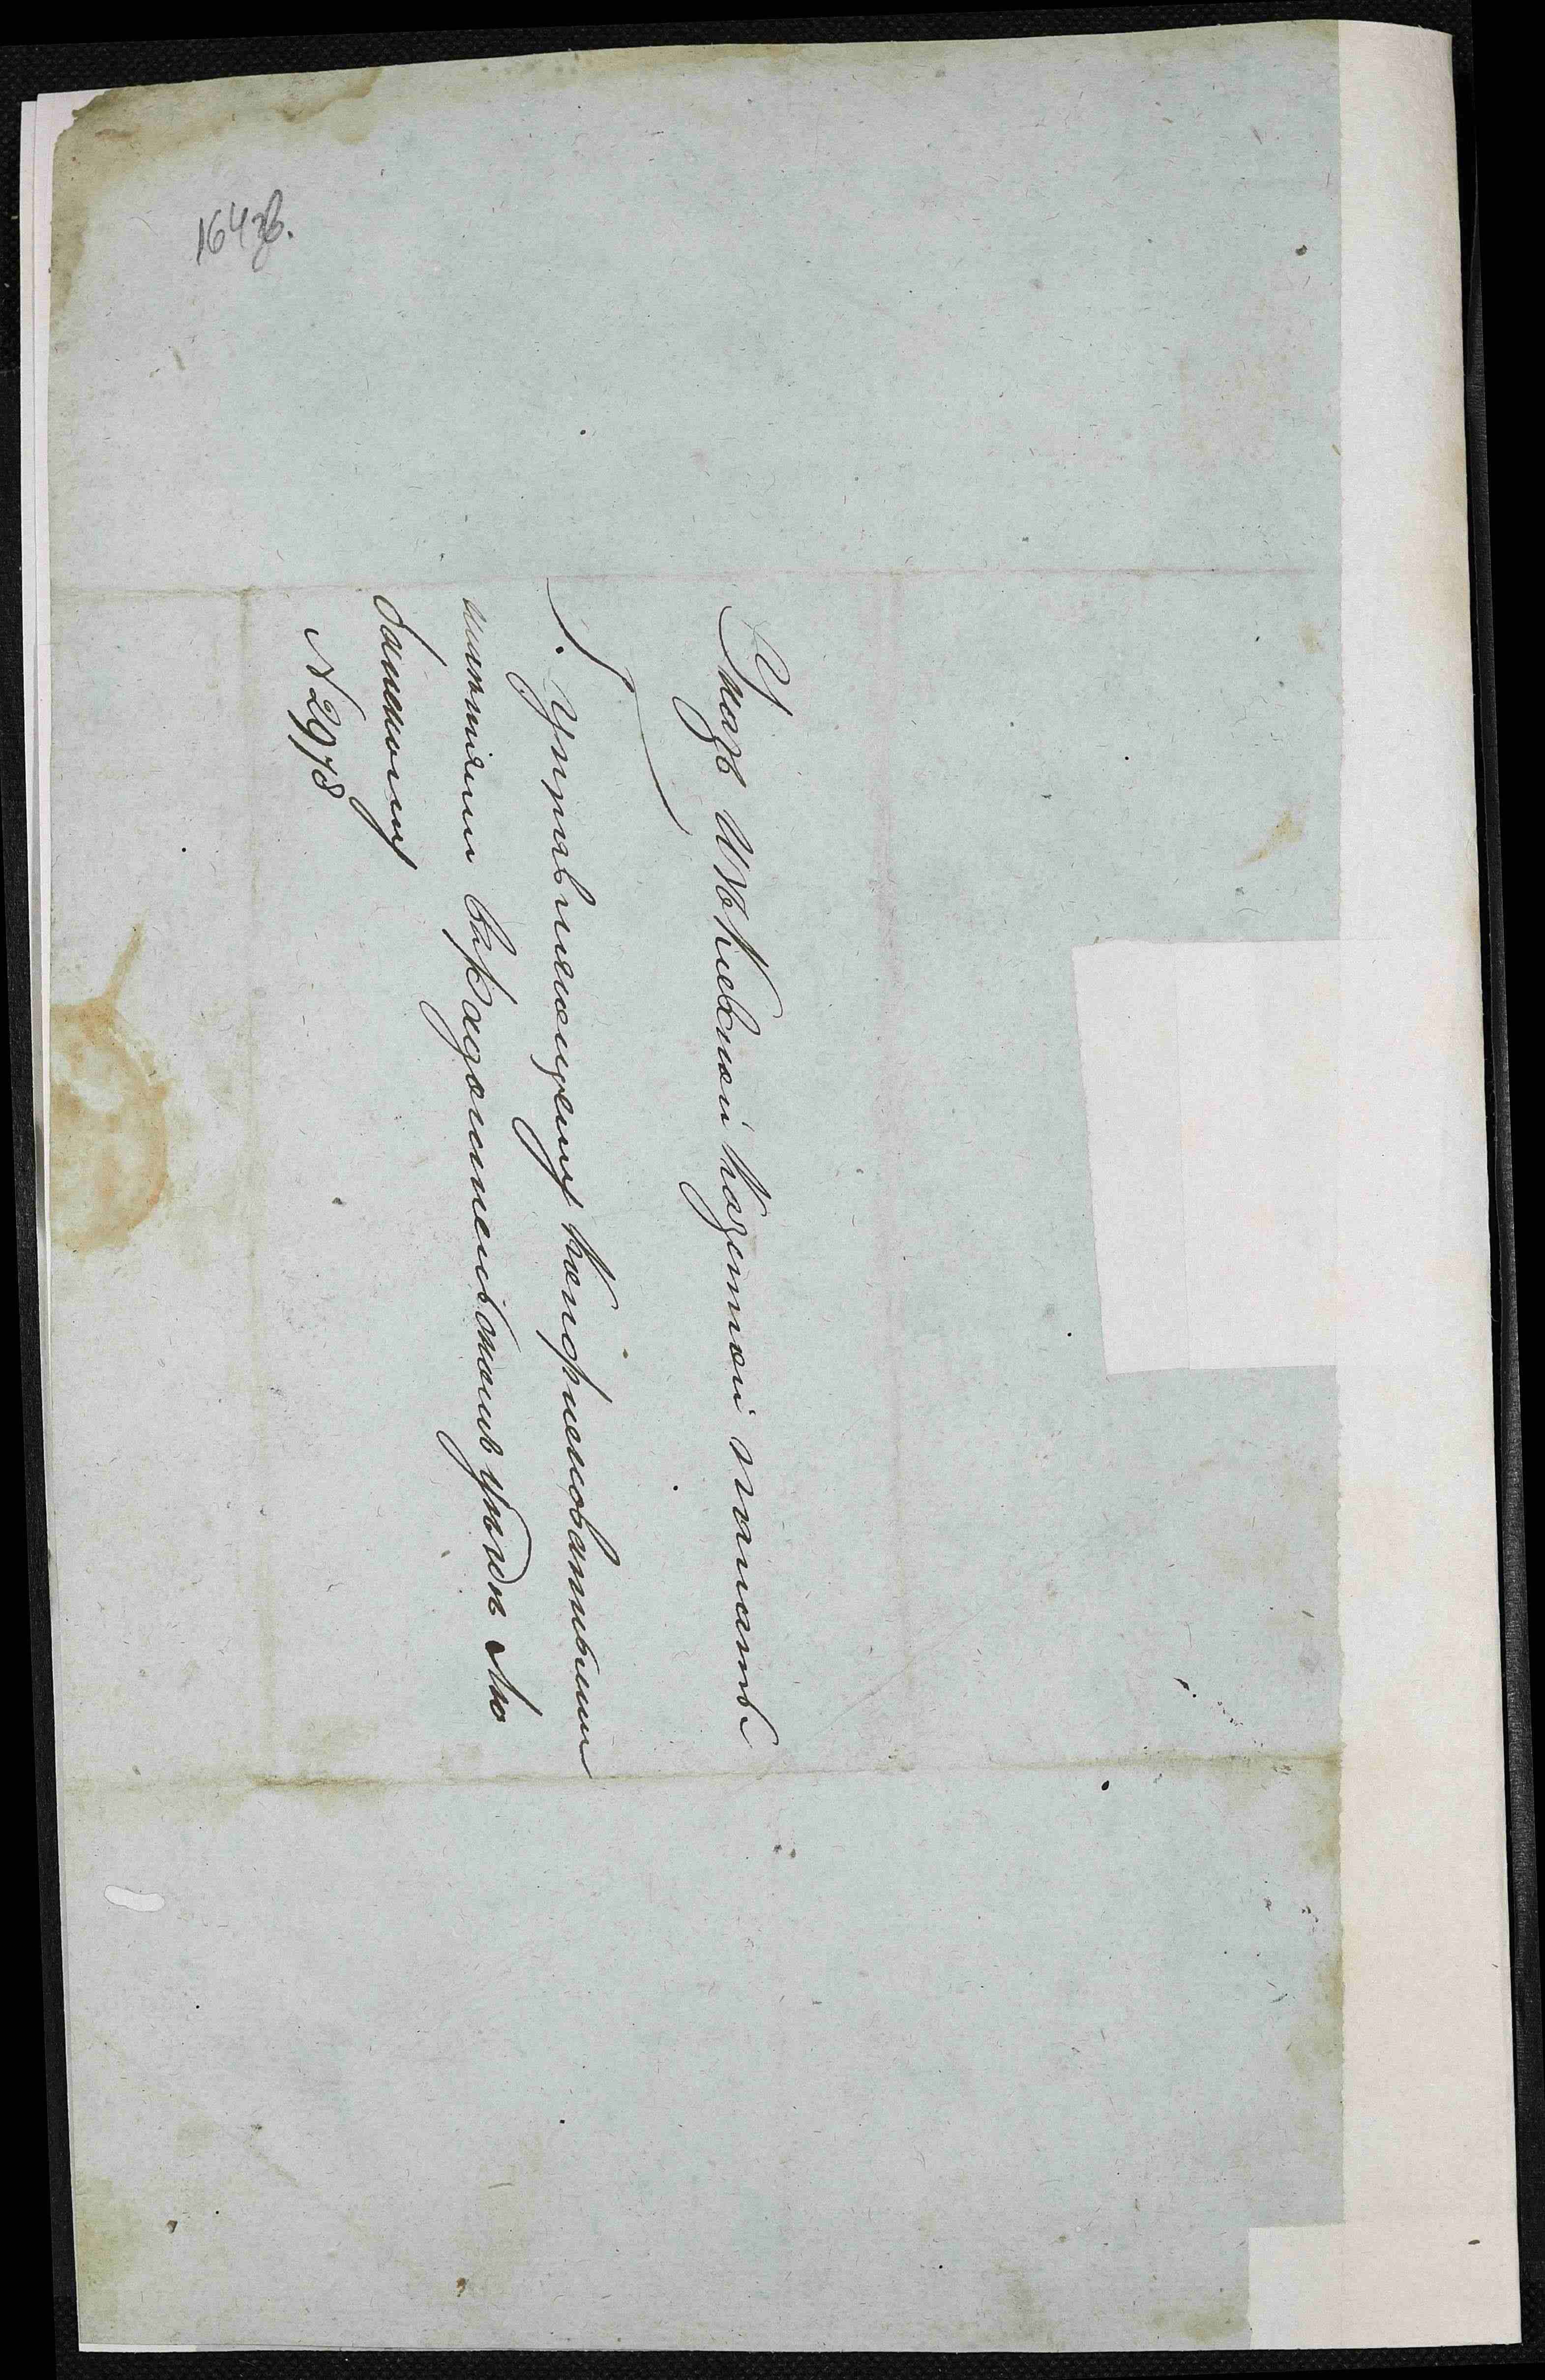 164 зв.
Указъ Изъ Киевской казенной палаты
Г. Управляющему конфискованными
имениями въ Радомысльскомъ уезде Лю
банскому
N 2978